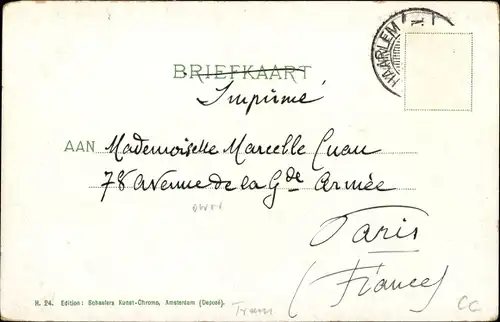 BRIEFKAART
HAARLEM
Imprimé
AAN Mademoiselle Marcelle Cuau
78 Avenue de la Gde Armée
Paris
(France)
CC
H. 24. Edition: Schaelers Kunst-Chromo, Amsterdam (Deposé).